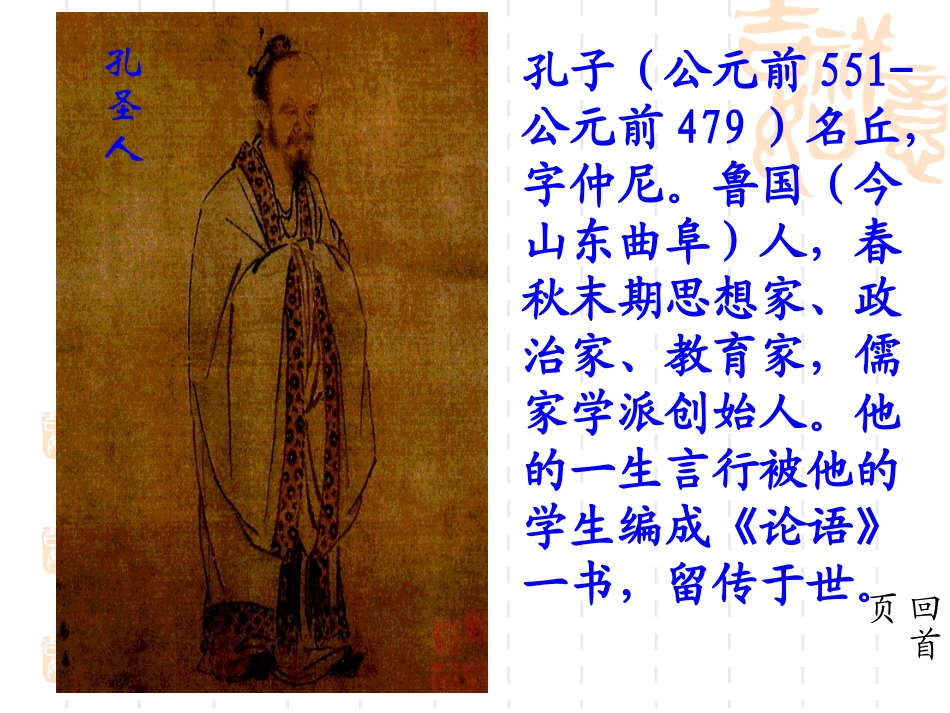 孔圣人
孔子（公元前 551-
公元前 479 ）名丘，
字仲尼。鲁国（今
山东曲阜）人，春
秋末期思想家、政
治家、教育家，儒
家学派创始人。他
的一生言行被他的
学生编成《论语》
一书，留传于世。
回首
页